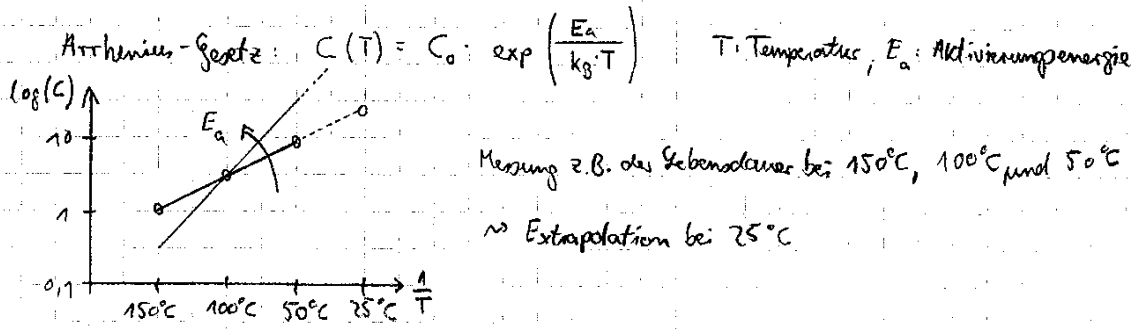 Arrhenius-Gesetz: C(T) = C₀ · exp(Eₐ / (k_B·T))   T: Temperatur, Eₐ: Aktivierungsenergie
log(C)
10
Eₐ
1
0,1
150°C 100°C 50°C 25°C 1/T
Messung z.B. der Lebensdauer bei 150°C, 100°C und 50°C
⇝ Extrapolation bei 25°C